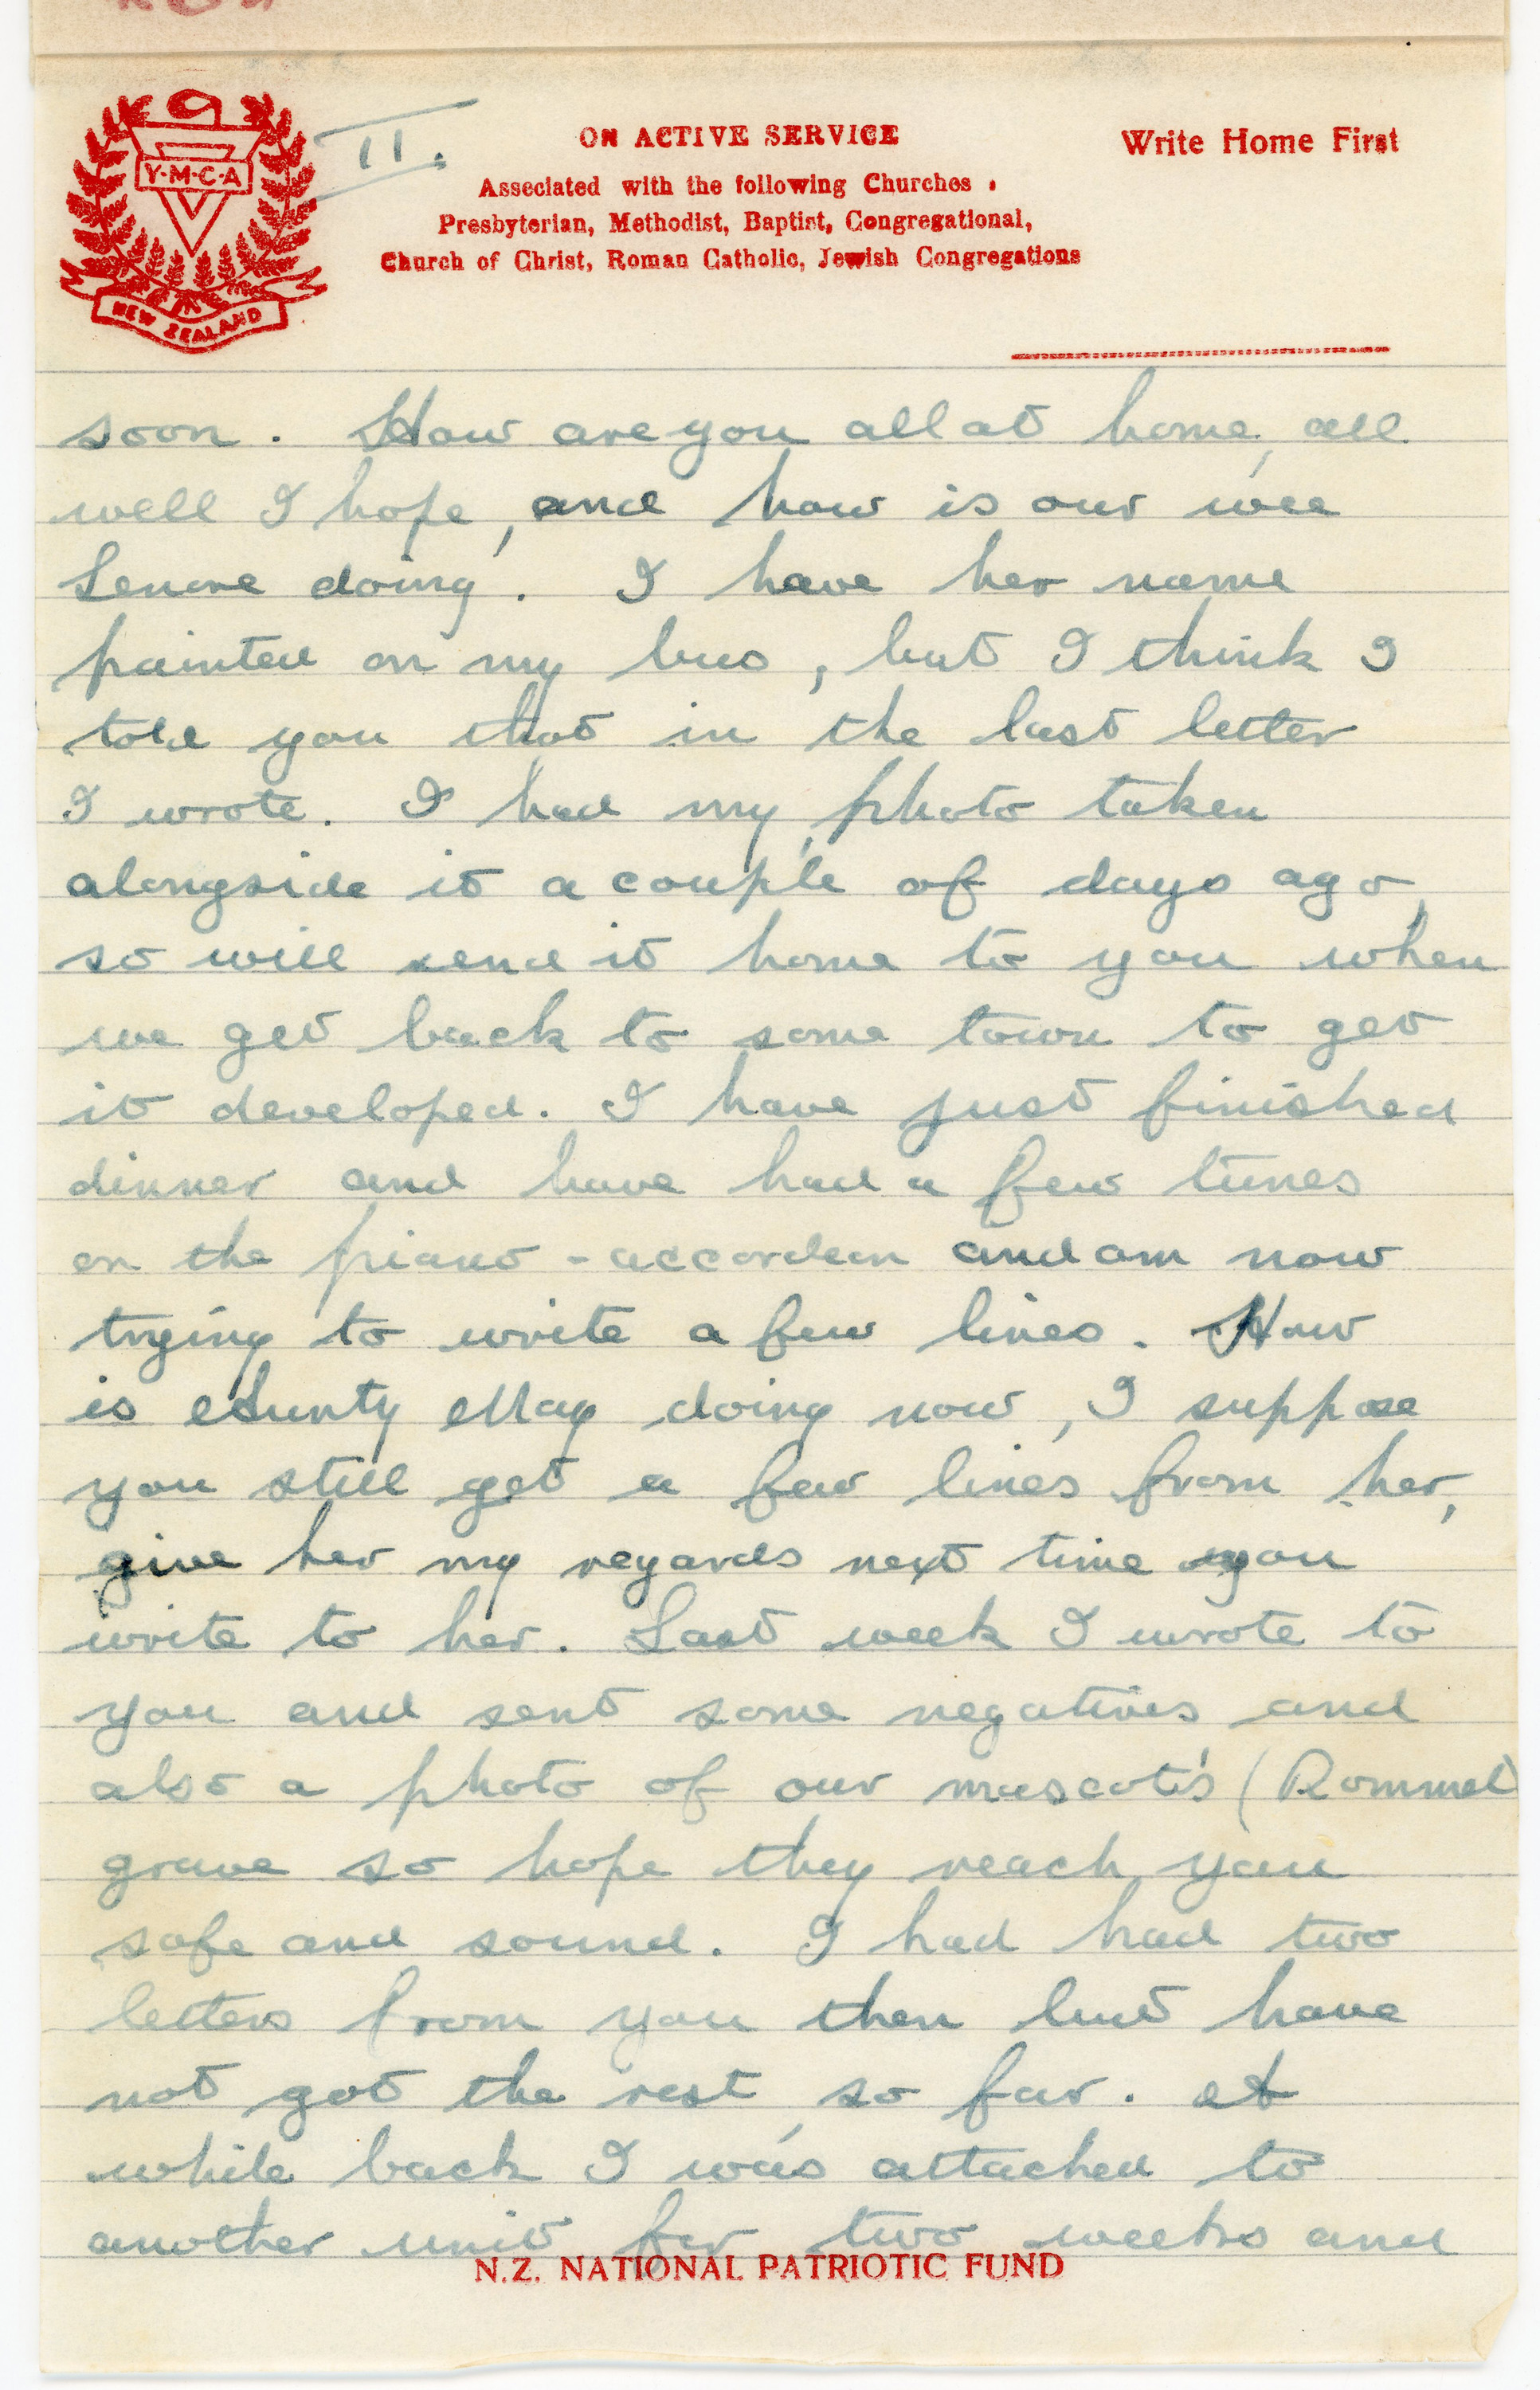 II.
Y·M·C·A
NEW ZEALAND
ON ACTIVE SERVICE
Write Home First
Associated with the following Churches :
Presbyterian, Methodist, Baptist, Congregational,
Church of Christ, Roman Catholic, Jewish Congregations
soon. How are you all at home, all
well I hope, and how is our wee
Lenore doing. I have her name
painted on my bus, but I think I
told you that in the last letter
I wrote. I had my photo taken
alongside it a couple of days ago,
so will send it home to you when
we get back to some town to get
it developed. I have just finished
dinner and have had a few tunes
on the piano-accordean and am now
trying to write a few lines. How
is Aunty May doing now, I suppose
you still get a few lines from her,
give her my regards next time you
write to her. Last week I wrote to
you and sent some negatives and
also a photo of our mascot's (Rommel)
grave so hope they reach you
safe and sound. I had had two
letters from you then but have
not got the rest, so far. A
while back I was attached to
another unit for two weeks and
N.Z. NATIONAL PATRIOTIC FUND